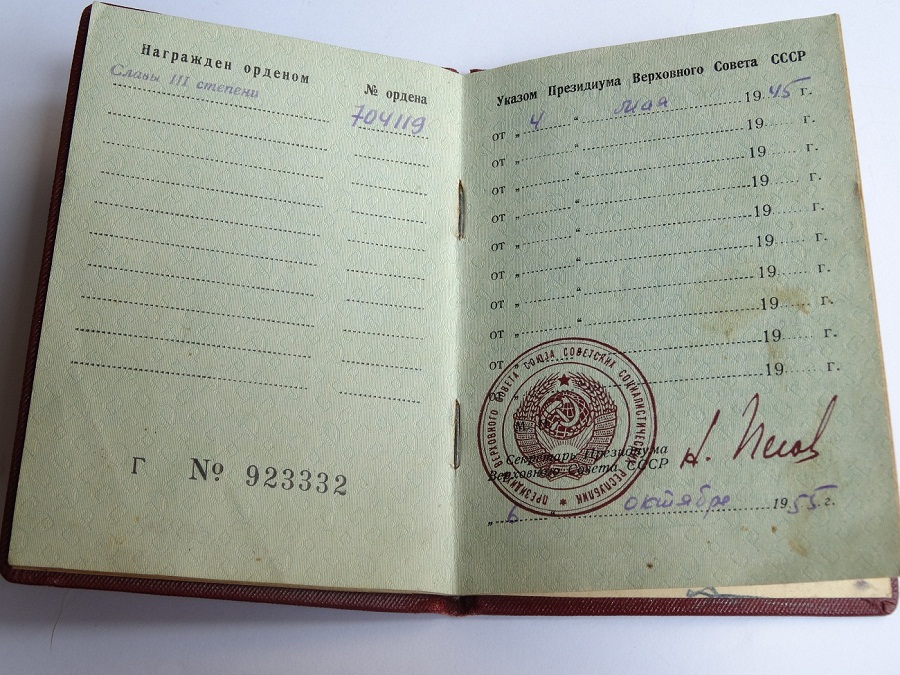 Награжден орденом
№ ордена
Славы III степени
704119
Г № 923332
Указом Президиума Верховного Совета СССР
от „ 4 “ мая 1945 г.
от „ “ 19 г.
от „ “ 19 г.
от „ “ 19 г.
от „ “ 19 г.
от „ “ 19 г.
от „ “ 19 г.
от „ “ 19 г.
от „ “ 19 г.
от „ “ 19 г.
ПРЕЗИДИУМ ВЕРХОВНОГО СОВЕТА СОЮЗА СОВЕТСКИХ СОЦИАЛИСТИЧЕСКИХ РЕСПУБЛИК
Секретарь Президиума
Верховного Совета СССР
„ 6 “ октября 1955 г.